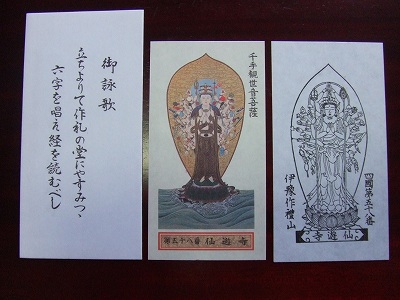 御詠歌
立ちよりて作礼の堂にやすみつゝ
六字を唱え経を読むべし
千手観世音菩薩
第五十八番 仙遊寺
四國第五十八番
伊豫作禮山
仙遊寺